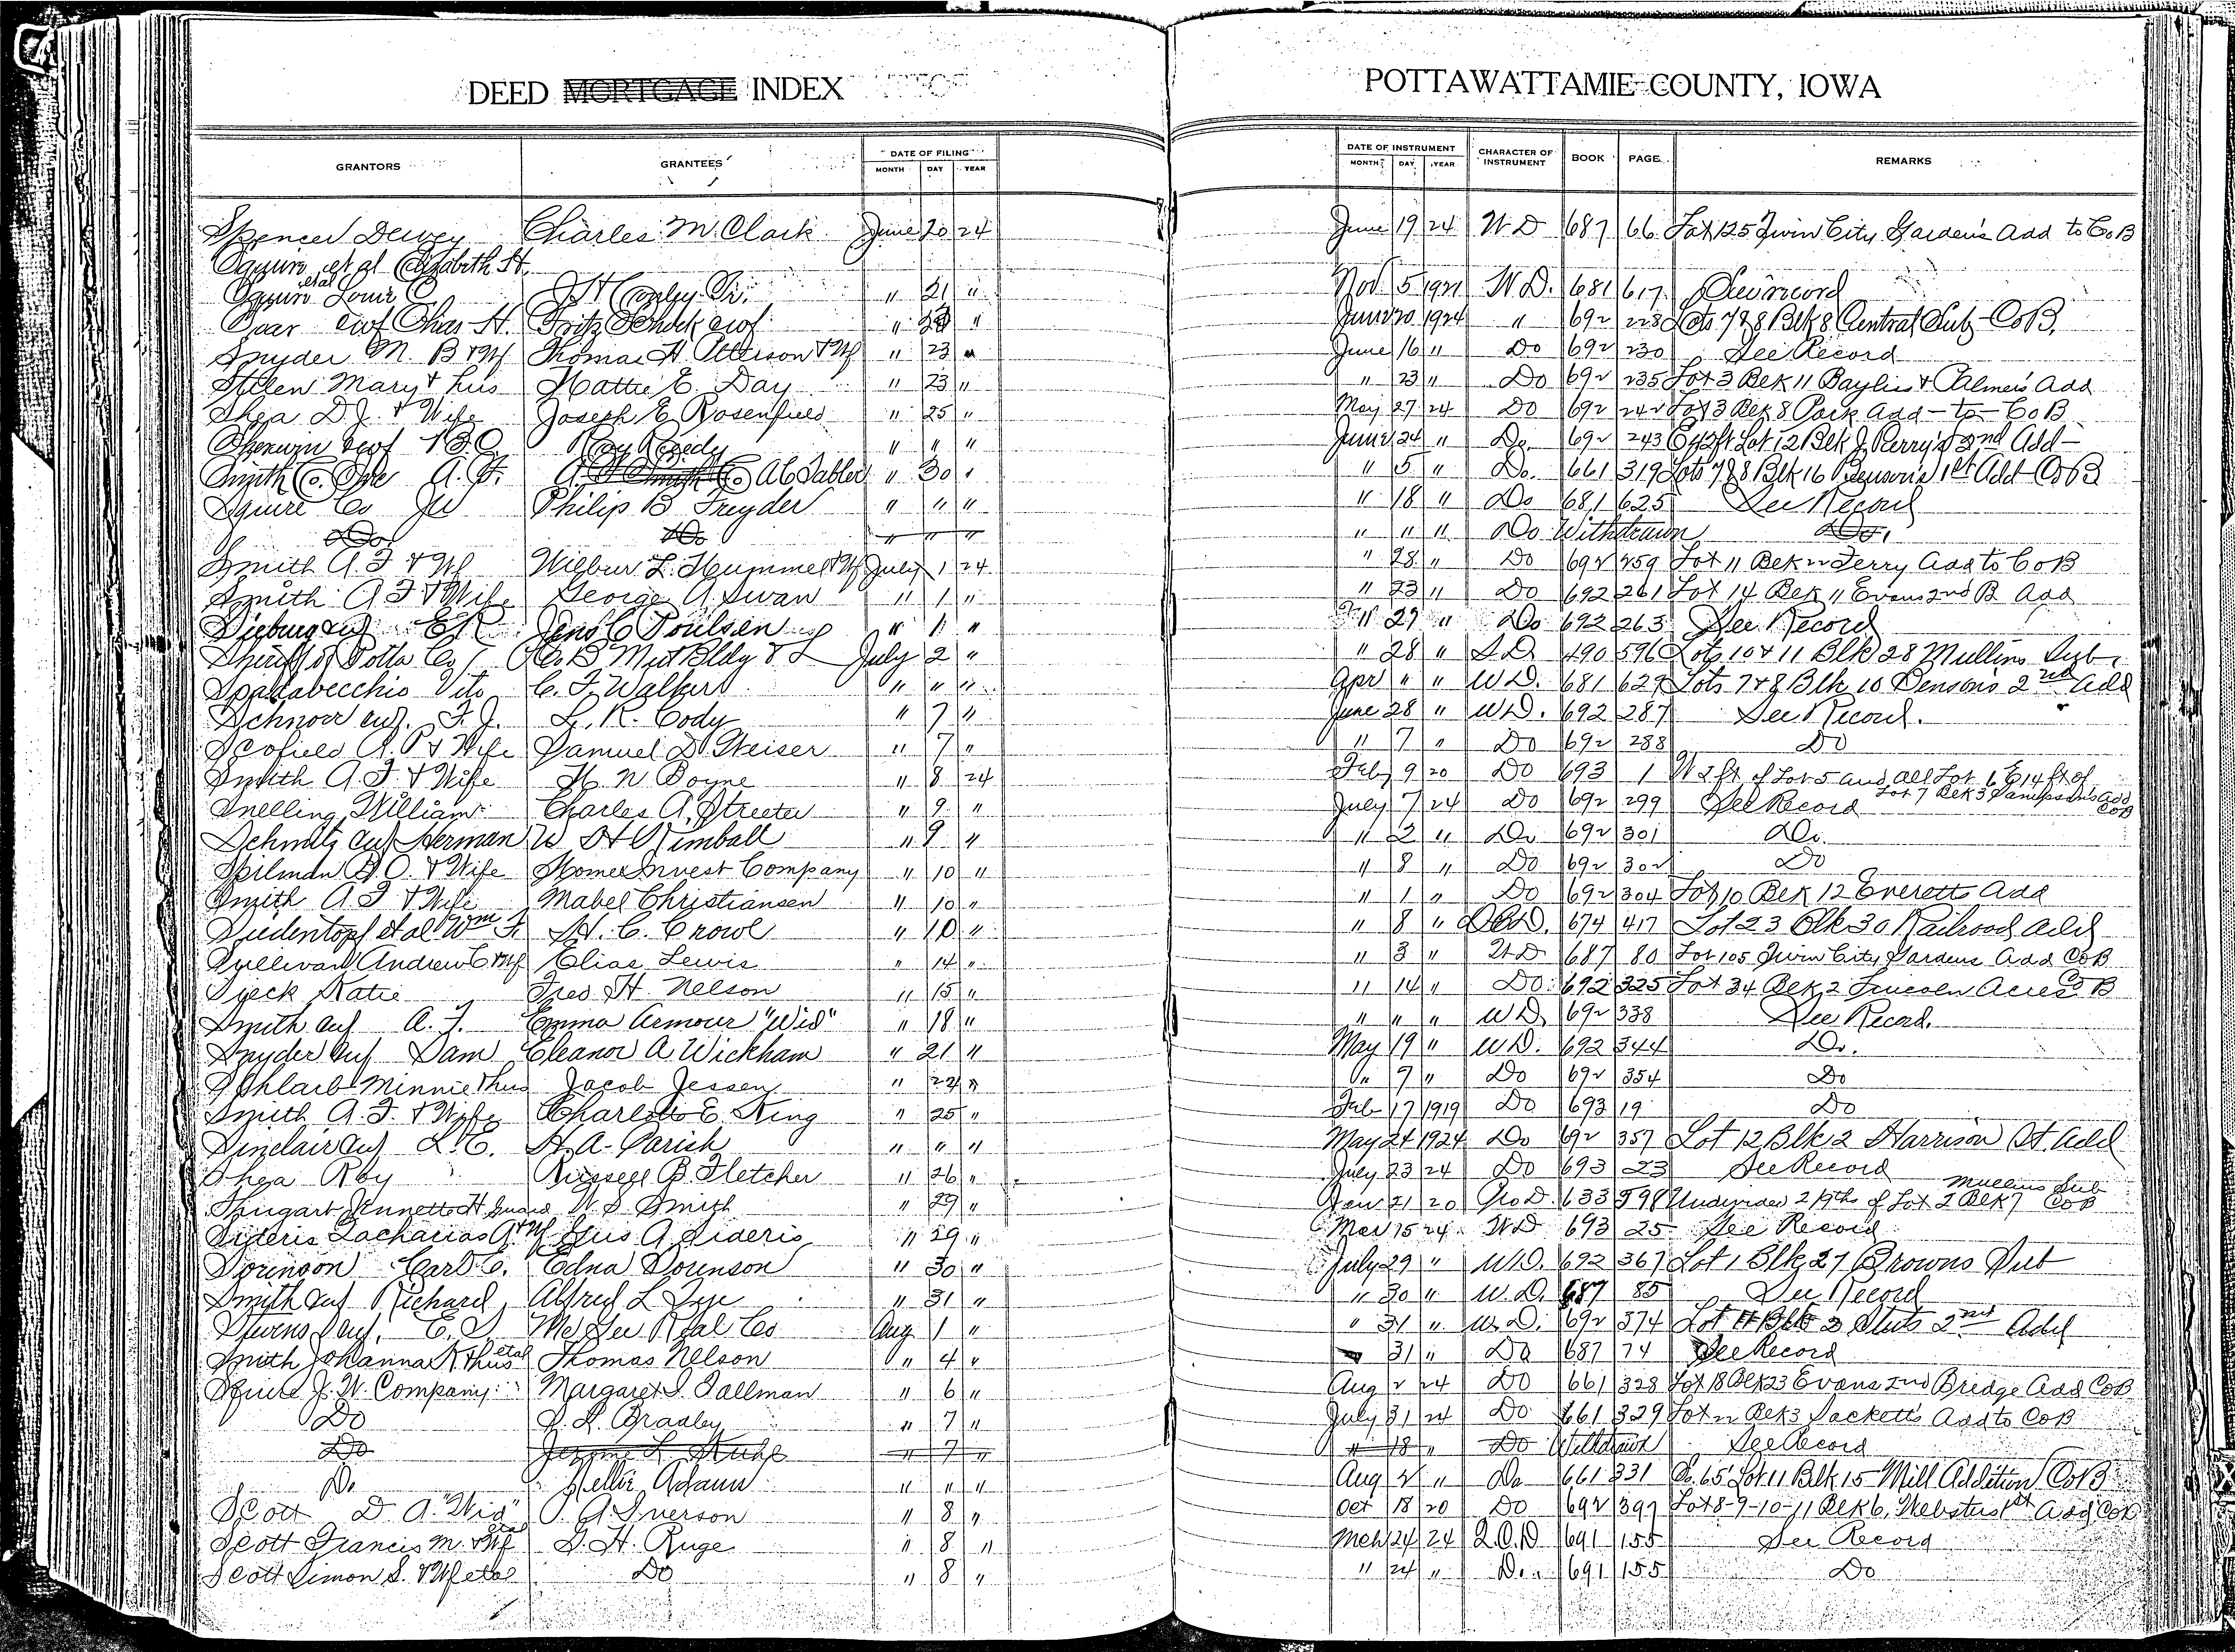 DEED MORTGAGE INDEX
POTTAWATTAMIE COUNTY, IOWA
GRANTORS GRANTEES DATE OF FILING MONTH DAY YEAR DATE OF INSTRUMENT MONTH DAY YEAR CHARACTER OF INSTRUMENT BOOK PAGE REMARKS
Spencer Dewey Charles M Clark June 20 24 June 19 24 W D 687 66 Lot 125 Twin City Garden's Add to CoB
Squire et al Elizabeth H.
Squire etal Louis C J H Conley Sr. " 21 " Nov 5 1921 W D. 681 617 See record
Saar Chas H. Fritz Schock " " June 20 1924 " 692 228 Lots 7 & 8 Blk 8 Central Sub CoB.
Snyder M. B & Wf Thomas H. Atterson & Wf " 23 " June 16 " Do 692 230 See Record
Stelen Mary & hus Hattie E. Day " 23 " " 23 " Do 692 235 Lot 3 Blk 11 Bayliss & Palmers Add
Shea D J. & Wife Joseph E Rosenfield " 25 " May 27 24 Do 692 242 Lot 3 Blk 8 Park Add - to CoB
Roy Reedy " " " June 24 " Do. 692 243 Lot 12 Blk J. Perry's 2nd Add
Smith Co. A. F. A C Tabler " 30 " " 5 " Do. 661 319 Lots 7 & 8 Blk 16 Benson's 1st Add CoB
Squire Co JW Philip B Treyder " " " " 18 " Do 681 625 See Record
Do. Do " " " " " " Do Withdrawn Do.
Smith A. F & Wf Wilbur L. Hummel & Wf July 1 24 " 28 " Do 692 259 Lot 11 Blk 22 Ferry Add to CoB
Smith A F & Wife George A Swan " 1 " " 23 " Do 692 261 Lot 14 Blk 11 Evans 2nd B Add
E R Jens C Poulsen " 1 " " 27 " Do 692 263 See Record
Sheriff of Potta Co Co B Mut Bldg & L July 2 " " 28 " S D. 490 596 Lots 10 & 11 Blk 28 Mullins Sub.
Spadavecchio Vito C. F. Walker " " " Apr " " W D. 681 627 Lots 7 & 8 Blk 10 Bensons 2nd Add
Schnorr F. J. L. R. Cody " 7 " June 28 " W D. 692 287 See Record.
Scofield A. P & Wife Samuel D. Weiser " 7 " " 7 " Do 692 288 Do
Smith A. F. & Wife H N Boyne " 8 24 Feb 9 20 Do 693 1 W 2 ft of Lot 5 and all Lot 6 E 14 ft of
Lot 7 Blk 3 Sampson's Add CoB
Snelling William Charles A. Streeter " 9 " July 7 24 Do 692 299 See Record
Schmitz Herman W H Kimball " 9 " " 2 " Do 692 301 Do.
Spilman B. O. & Wife Homes Invest Company " 10 " " 8 " Do 692 302 Do
Smith A F & Wife Mabel Christiansen " 10 " " 1 " Do 692 304 Lot 10 Blk 12 Everetts Add
Siedentopf et al Wm F. H. C. Crowl " 10 " " 8 " 674 417 Lot 23 Blk 30 Railroad Add
Sullivan Andrew C & Wf Elias Lewis " 14 " " 3 " W D 687 80 Lot 105 Twin City Gardens Add CoB
Syeck Katie Fred H. Nelson " 15 " " 14 " Do. 692 325 Lot 34 Blk 2 Lincoln Acres Co B
Smith A. F. Emma Armour "Wid" " 18 " " " " W D. 692 338 See Record.
Snyder Sam Eleanor A Wickham " 21 " May 19 " W D. 692 344 Do.
Schlarb Minnie & hus Jacob Jessen " 22 " " 7 " Do 692 354 Do
Smith A. F. & Wife Charlotte E. King " 25 " Feb 17 1919 Do 693 19 Do
Sinclair L. E. H. A. Parish " " " May 24 1924 Do 692 357 Lot 12 Blk 2 Harrison St. Add
Shea Roy Russell B Fletcher " 26 " July 23 24 Do 693 23 See Record
Shugart Jennette H Guard W. S Smith " 29 " Nov 21 20 633 598 Undivided 2/9ths of Lot 2 Blk 7 Mullins Sub CoB
Sideris Zacharias A & Wf Gus A Sideris " 29 " Mar 15 24 W D 693 25 See Record
Sorinson Carl C. Edna Sorenson " 30 " July 29 " W D. 692 367 Lot 1 Blk 27 Browns Sub
Smith Richard Alfred L " 31 " " 30 " W. D. 687 85 See Record
Stevens E. S. McGee Real Co Aug 1 " " 31 " W. D. 692 374 2nd Add
Smith Johanna K & hus etal Thomas Nelson " 4 " 31 " Do 687 74 See Record
Squire J. W. Company Margaret I. Tallman " 6 " Aug 2 24 Do 661 328 Lot 18 Blk 23 Evans 2nd Bridge Add CoB
Do Bradley " 7 " July 31 24 Do 661 329 Lot 22 Blk 3 Sacketts Add to CoB
Do Jerome L. Kuhl " 7 " " 18 " Do Withdrawn See Record
Do Nellie Adams " " " Aug 2 " Do 661 331 So. 65' Lot 11 Blk 15 Mill Addition CoB
Scott D A. "Wid" A Iverson " 8 " Oct 18 20 Do 692 397 Lot 8-9-10-11 Blk 6, Websters 1st Add CoB
Scott Francis M. & Wf etal G. H. Ruge " 8 " Mch 24 24 Q. C. D 691 155 See Record
Scott Simon S. & Wf etal Do " 8 " " 24 " Do. 691 155 Do